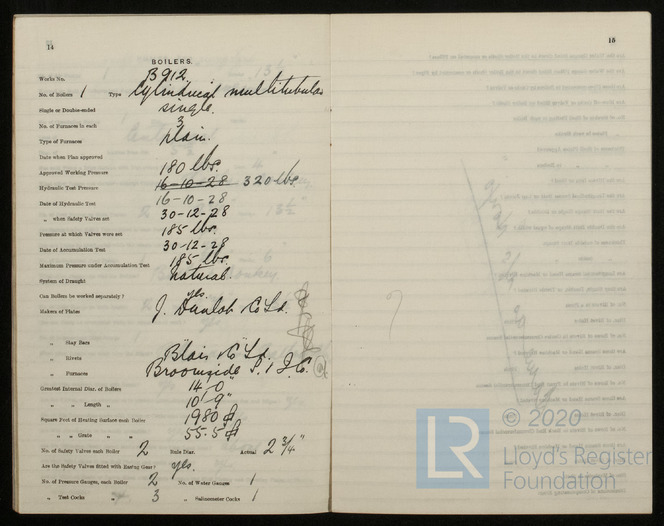 14
BOILERS.
Works No. B912.
No. of Boilers 1 Type Cylindrical multitubular
Single or Double-ended single.
No. of Furnaces in each 3
Type of Furnaces plain.
Date when Plan approved
Approved Working Pressure 180 lbs.
Hydraulic Test Pressure 16-10-28 320 lbs.
Date of Hydraulic Test 16-10-28
„ when Safety Valves set 30-12-28
Pressure at which Valves were set 185 lbs.
Date of Accumulation Test 30-12-28
Maximum Pressure under Accumulation Test 185 lbs.
System of Draught natural.
Can Boilers be worked separately? yes.
Makers of Plates J. Dunlop & Co Ld.
„ Stay Bars
„ Rivets Blair & Co Ld.
„ Furnaces Broomside
Greatest Internal Diar. of Boilers 14' 0"
„ „ Length „ 10' 9"
Square Feet of Heating Surface each Boiler 1980
„ „ Grate „ „ 55.5
No. of Safety Valves each Boiler 2 Rule Diar. Actual 2 3/4"
Are the Safety Valves fitted with Easing Gear? yes.
No. of Pressure Gauges, each Boiler 2 No. of Water Gauges 1
„ Test Cocks „ 3 „ Salinometer Cocks 1
15
LR © 2020
Lloyd's Register
Foundation